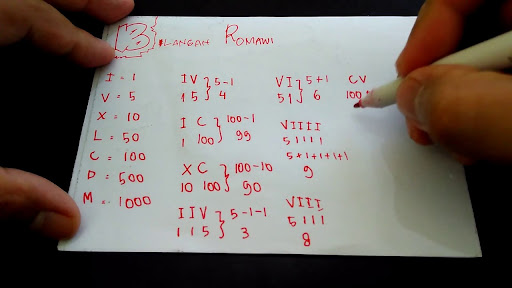 BILANGAN ROMAWI
I = 1
V = 5
X = 10
L = 50
C = 100
D = 500
M = 1000
IV } 5-1
1 5 } 4
I C } 100-1
1 100 } 99
XC } 100-10
10 100 } 90
IIV } 5-1-1
1 1 5 } 3
VI } 5+1
5 1 } 6
VIIII
5 1 1 1 1
5+1+1+1+1
9
VIII
5 1 1 1
8
CV
100